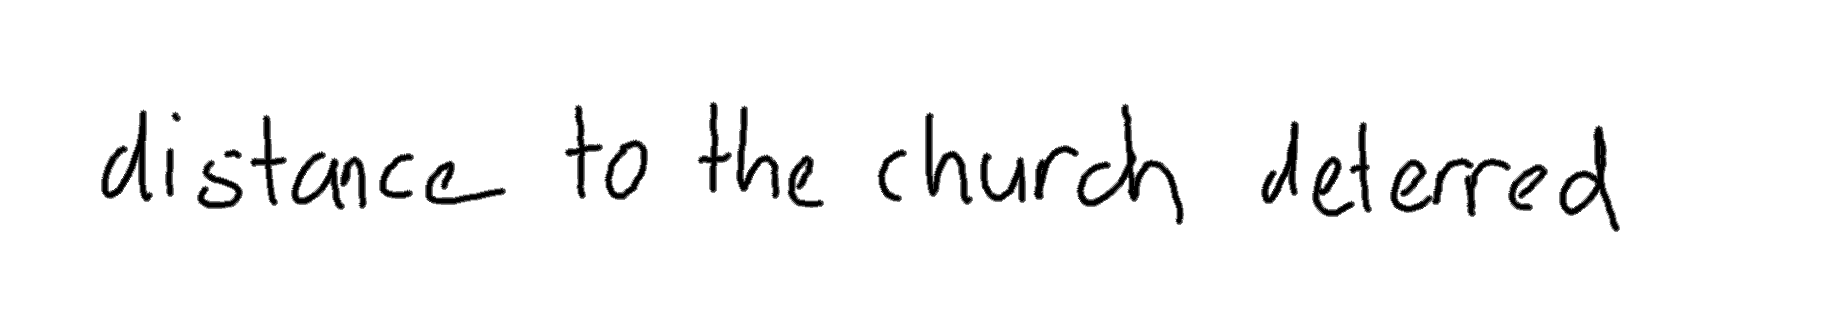 distance to the church deterred